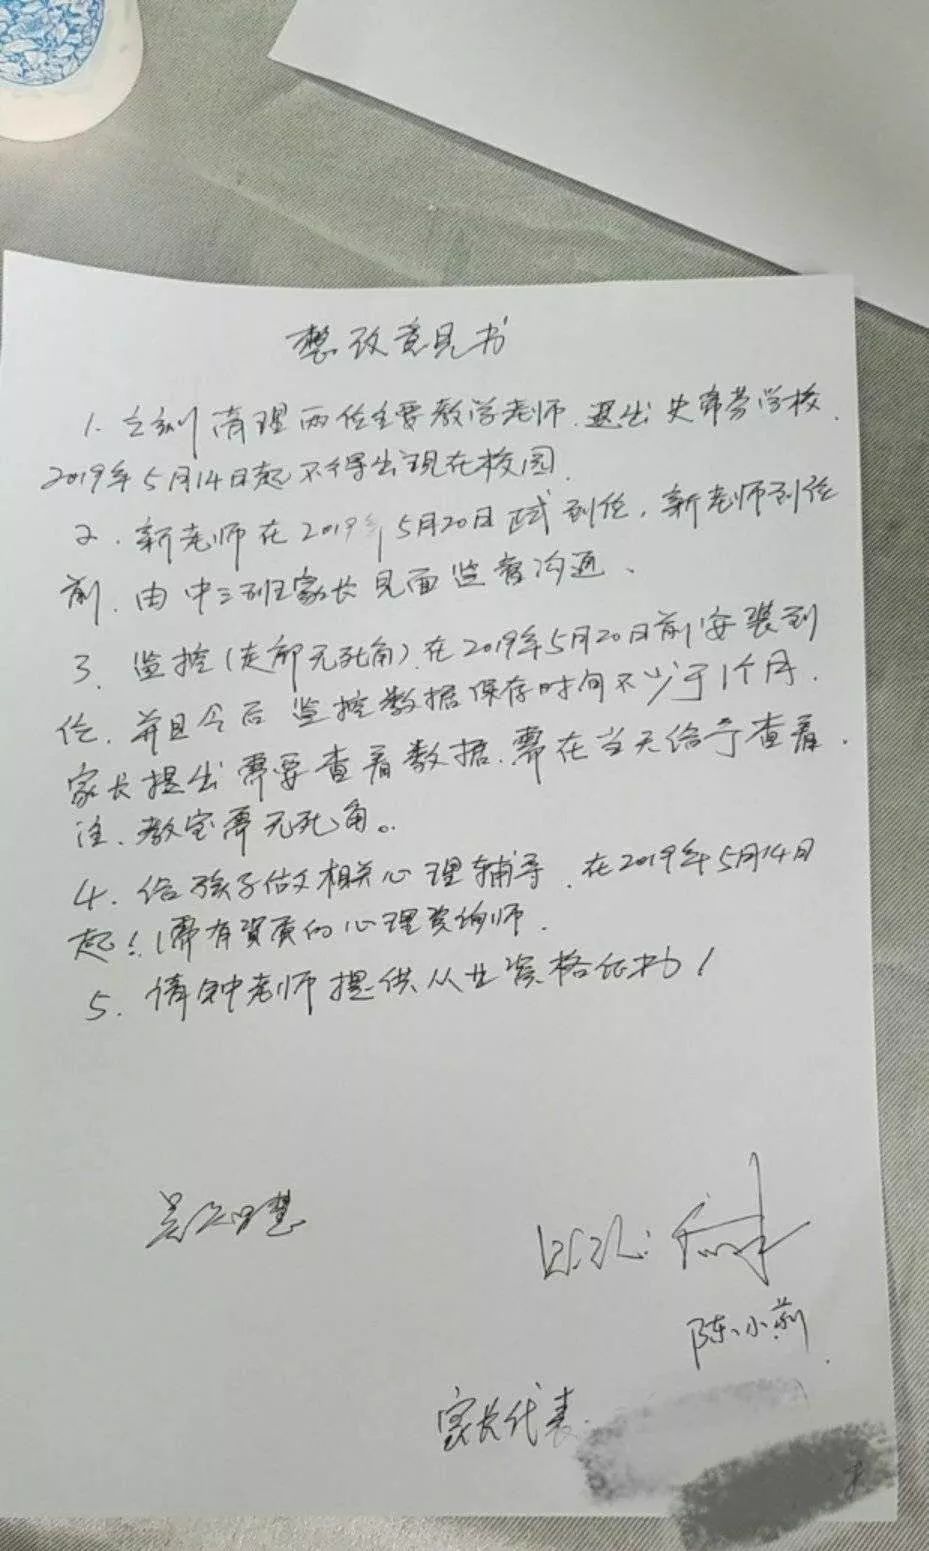 整改意见书
1. 立刻清理两位主要教学老师.退出史蒂芬学校.
2019年5月14日起不得出现在校园.
2. 新老师在2019年5月20日正式到位.新老师到位
前.由中三班家长见面监督沟通、
3、监控(走廊无死角).在2019年5月20日前安装到
位.并且今后监控数据保存时间不少于1个月.
家长提出需要查看数据.需在当天给予查看.
注.教室要无死角。
4. 给孩子做相关心理辅导.在2019年5月14日
起!(需有資质的心理资询师.
5. 请钟老师提供从业资格证书!
陈小莉
家长代表.